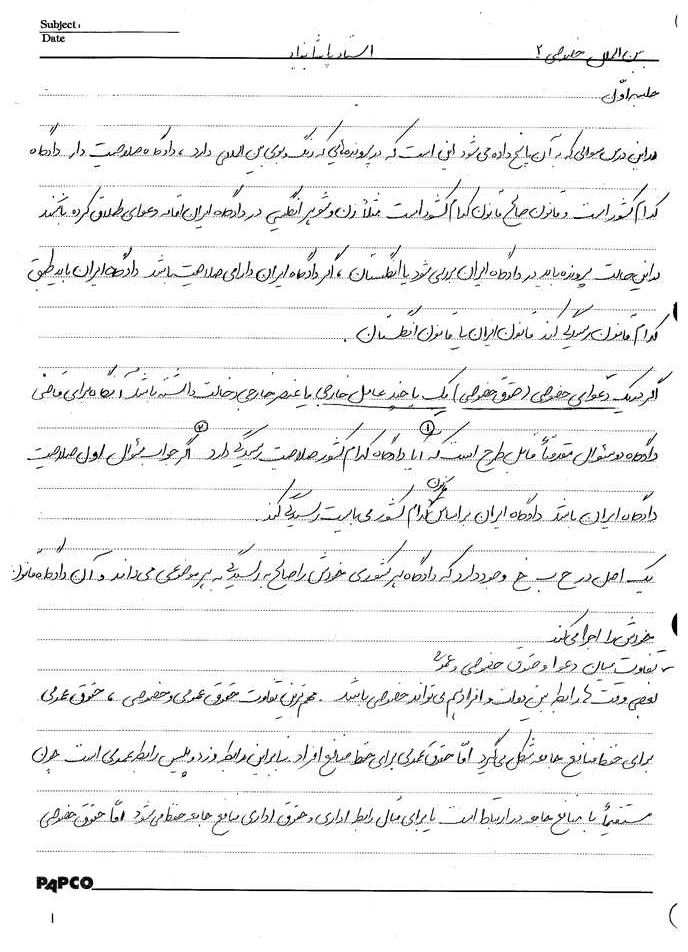 Subject:
Date
بین الملل خصوصی ۲ استاد پاشا بنیاد
جلسه اوّل
در این درس سوالی که به آن پاسخ داده می شود این است که در پرونده هایی که رنگ و بوی بین المللی دارد، دادگاه صلاحیت دار دادگاه
کدام کشور است و قانون صالح قانون کدام کشور است مثلاً زن و شوهر انگلیسی در دادگاه ایران اقامه دعوای طلاق کرده باشند
در این حالت پرونده باید در دادگاه ایران بررسی شود یا انگلستان، اگر دادگاه ایران دارای صلاحیت باشد دادگاه ایران باید طبق
کدام قانون رسیدگی کند قانون ایران یا قانون انگلستان.
اگر در یک دعوای خصوصی (حقوق خصوصی) یک یا چند عامل خارجی یا عنصر خارجی دخالت داشته باشد آنگاه برای قاضی
دادگاه دو سئوال مقدمتاً قابل طرح است که ① آیا دادگاه کدام کشور صلاحیت رسیدگی دارد ② اگر جواب سئوال اول صلاحیت
دادگاه ایران باشد دادگاه ایران بر اساس قانون کدام کشور می بایست رسیدگی کند
یک اصل در ح ب خ وجود دارد که دادگاه هر کشوری خودش را صالح به رسیدگی به هر موضوعی می داند و آن دادگاه قانون
خودش را اجرا می کند
- تفاوت میان دعوا و حقوق خصوصی و عمومی
بعضی وقت ها رابطه بین دولت و افراد هم می تواند خصوصی باشد. مهم ترین تفاوت حقوق عمومی و خصوصی، حقوق عمومی
برای حفظ منافع جامعه شکل می گیرد امّا حقوق عمومی برای حفظ منافع افراد. بنابراین رابطه دزد و پلیس رابطه عمومی است چون
مستقیماً با منافع جامعه در ارتباط است یا برای مثال رابطه اداری و حقوق اداری منافع جامعه حفظ می شود امّا حقوق خصوصی
PAPCO
۱